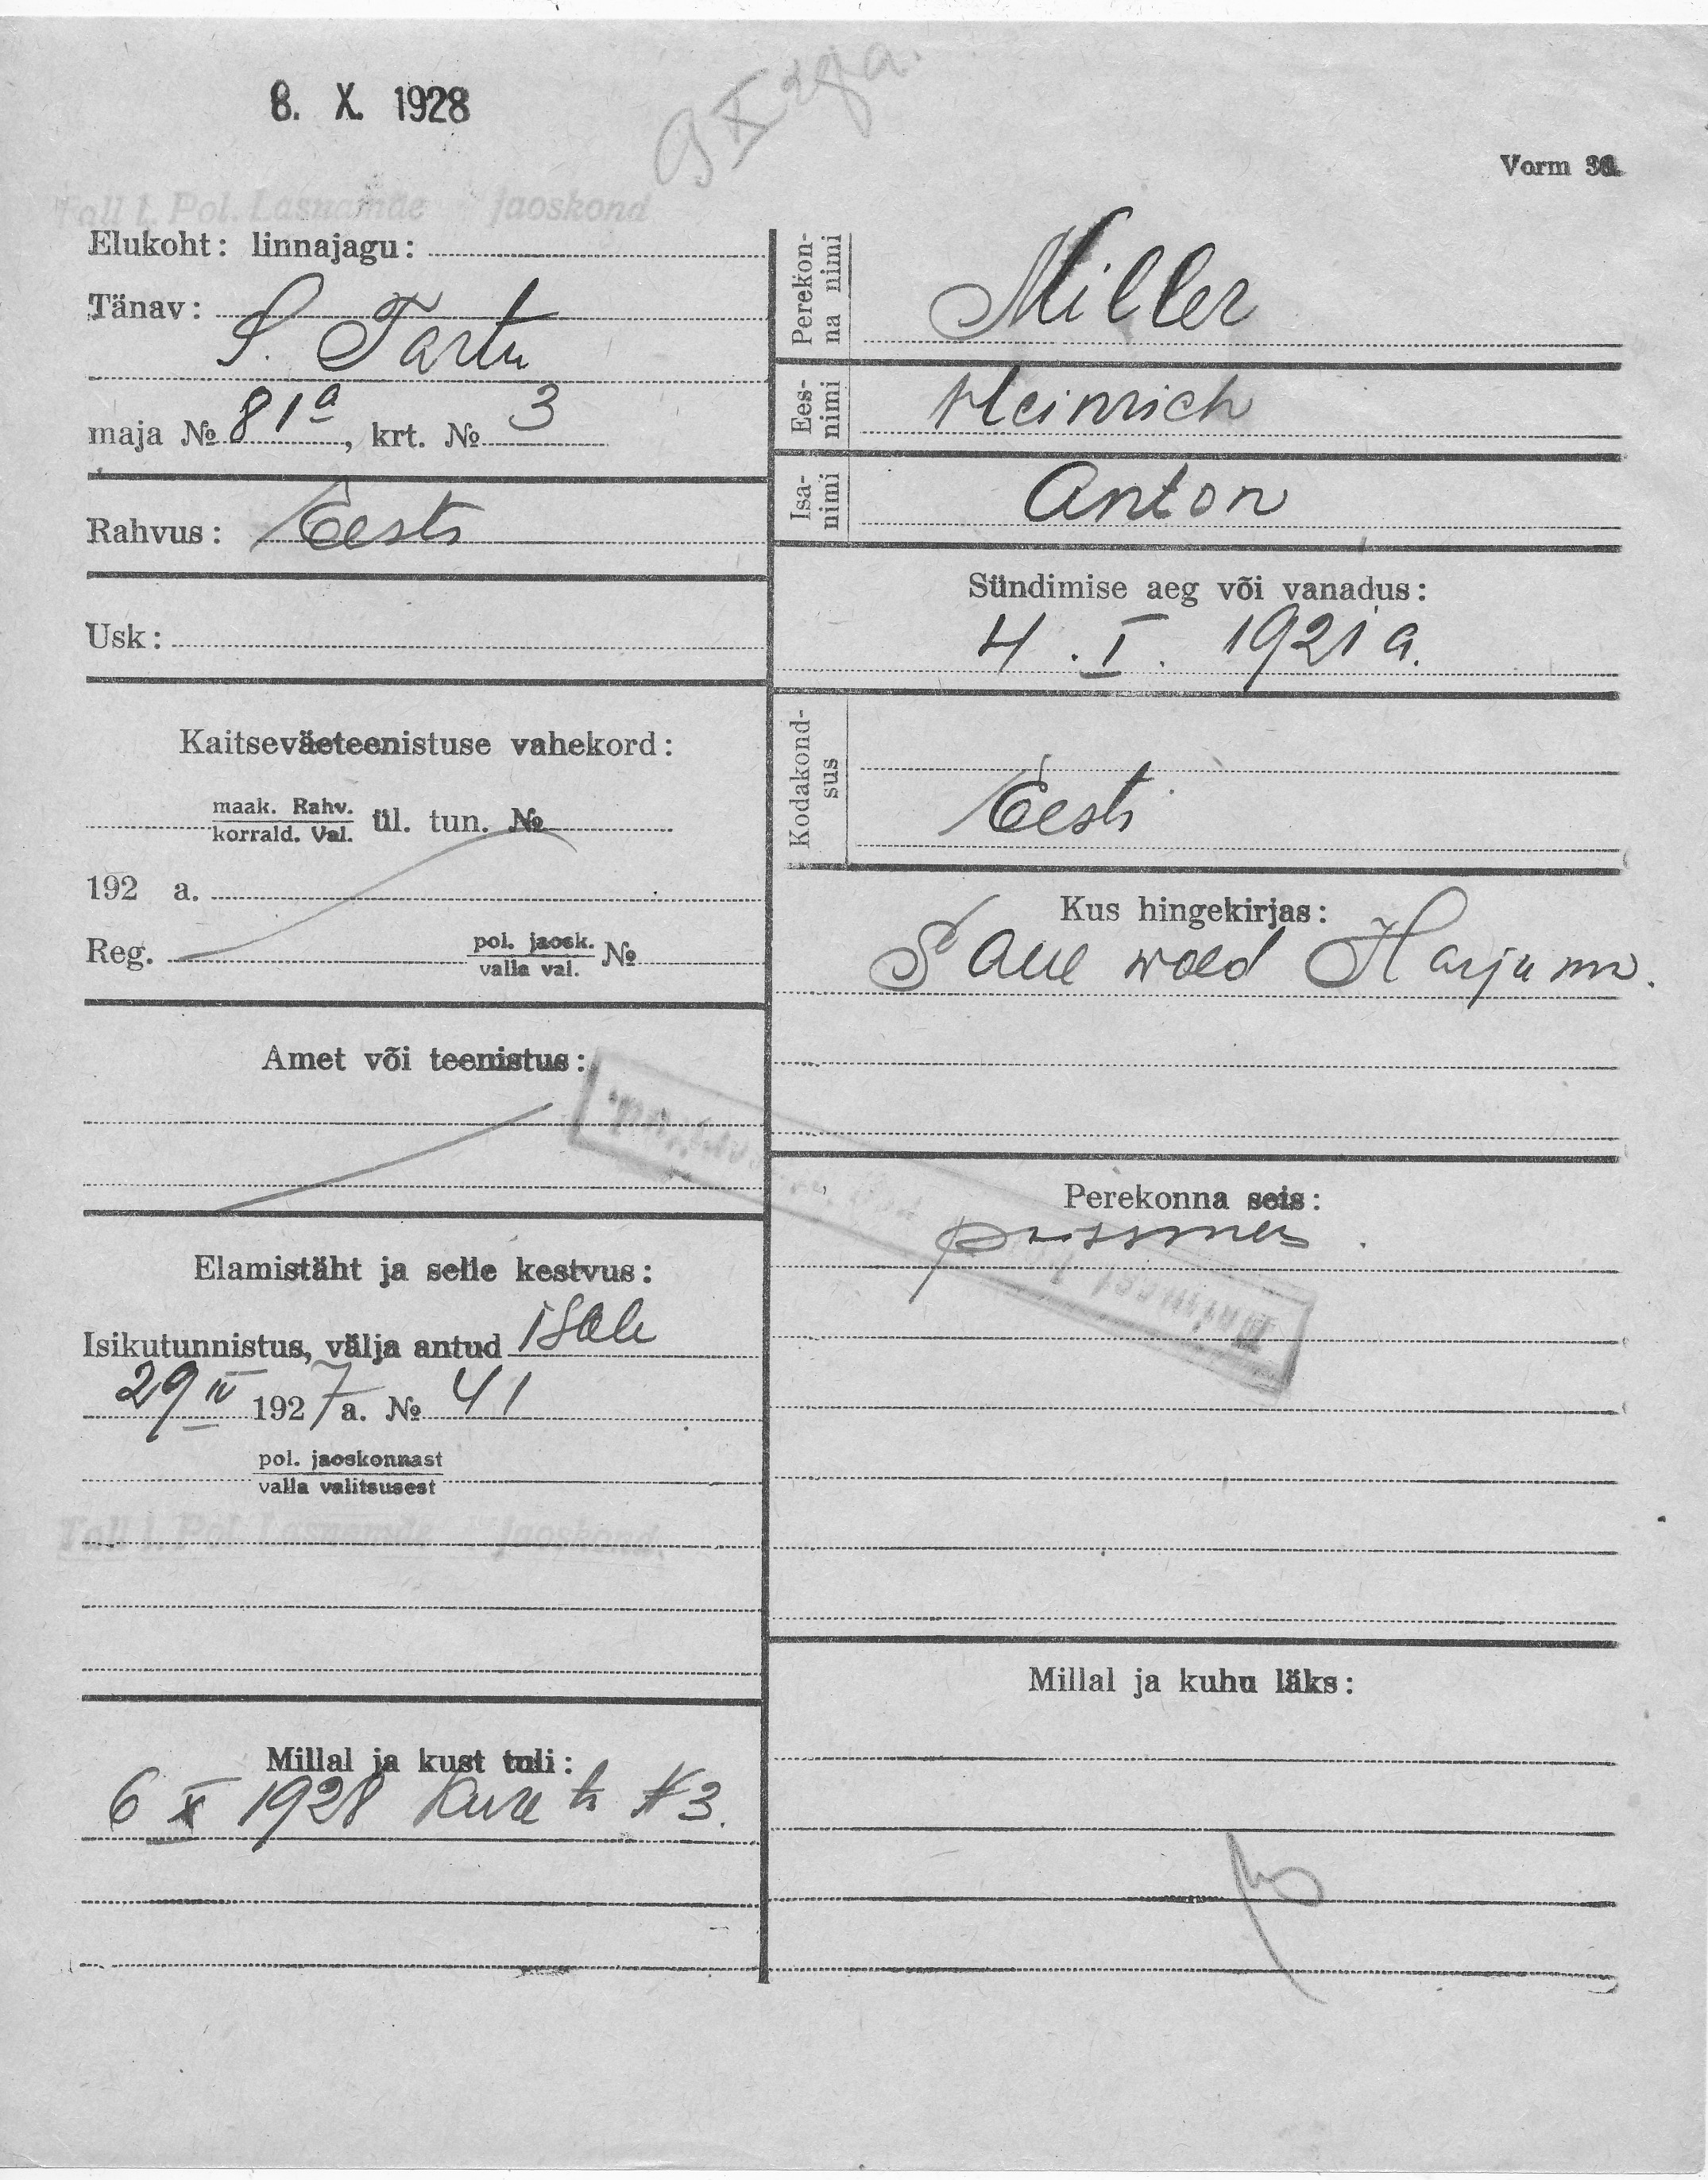 8. X. 1928
9 X 28 a.
Vorm 36.
Tall. l. Pol. Lasnamäe jaoskond
Elukoht: linnajagu:
Tänav:
S. Tartu
maja № 81a, krt. № 3
Rahvus: Eesti
Usk:
Kaitseväeteenistuse vahekord:
maak. Rahv.
korrald. Val. ül. tun. №
192 a.
Reg. pol. jaosk.
valla val. №
Amet või teenistus:
Elamistäht ja selle kestvus:
Isikutunnistus, välja antud isale
29 IV 1927 a. № 41
pol. jaoskonnast
valla valitsusest
Tall. l. Pol. Lasnamäe jaoskond.
Millal ja kust tuli:
6 X 1928 Kure tn № 3.
Perekonna nimi
Miller
Eesnimi
Heinrich
Isanimi
Anton
Sündimise aeg või vanadus:
4. I. 1921 a.
Kodakondsus
Eesti
Kus hingekirjas:
Saue wald Harjum.
Perekonna seis:
poissmees
Millal ja kuhu läks: